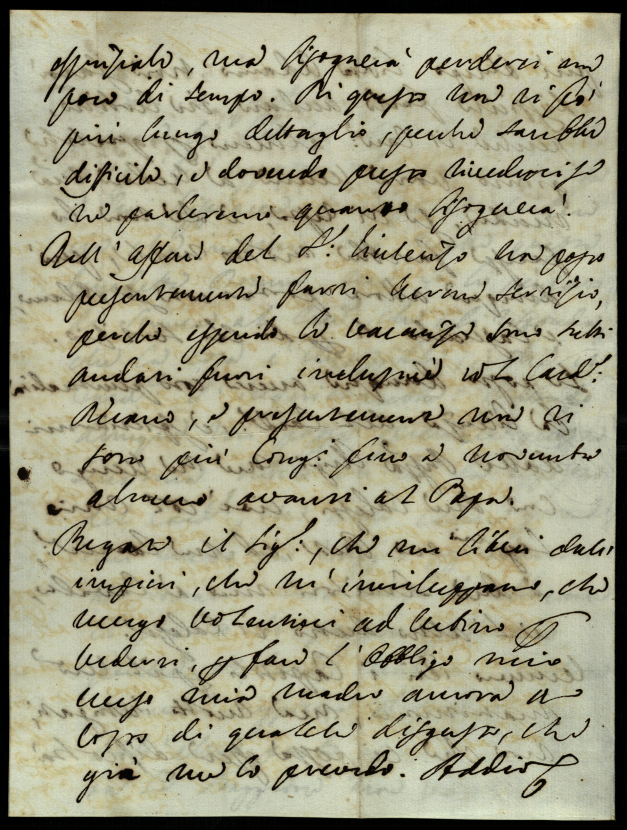 ma bisognerà perdervi un
poco di tempo. Di questo non vi fò
più lungo dettaglio, perchè sarebbe
difficile, e dovendo presto rivederci
ne parleremo quanto bisognerà.
Nell'affare del S.r non posso
presentemente farvi servizio,
perchè essendo le vacanze sono tutti
andati fuori inclusive col Card.l
e presentemente non vi
sono più Cong.i fino a novembre
almeno avanti al Papa.
Pregate il Sig.e, che mi liberi dalli
impicci, che m'inviluppano, che
vengo volentieri ad Urbino p
vedervi, e p fare l'obbligo mio
verso mia madre ancora a
costo di qualche disgusto, che
già me lo prevedo. Addio